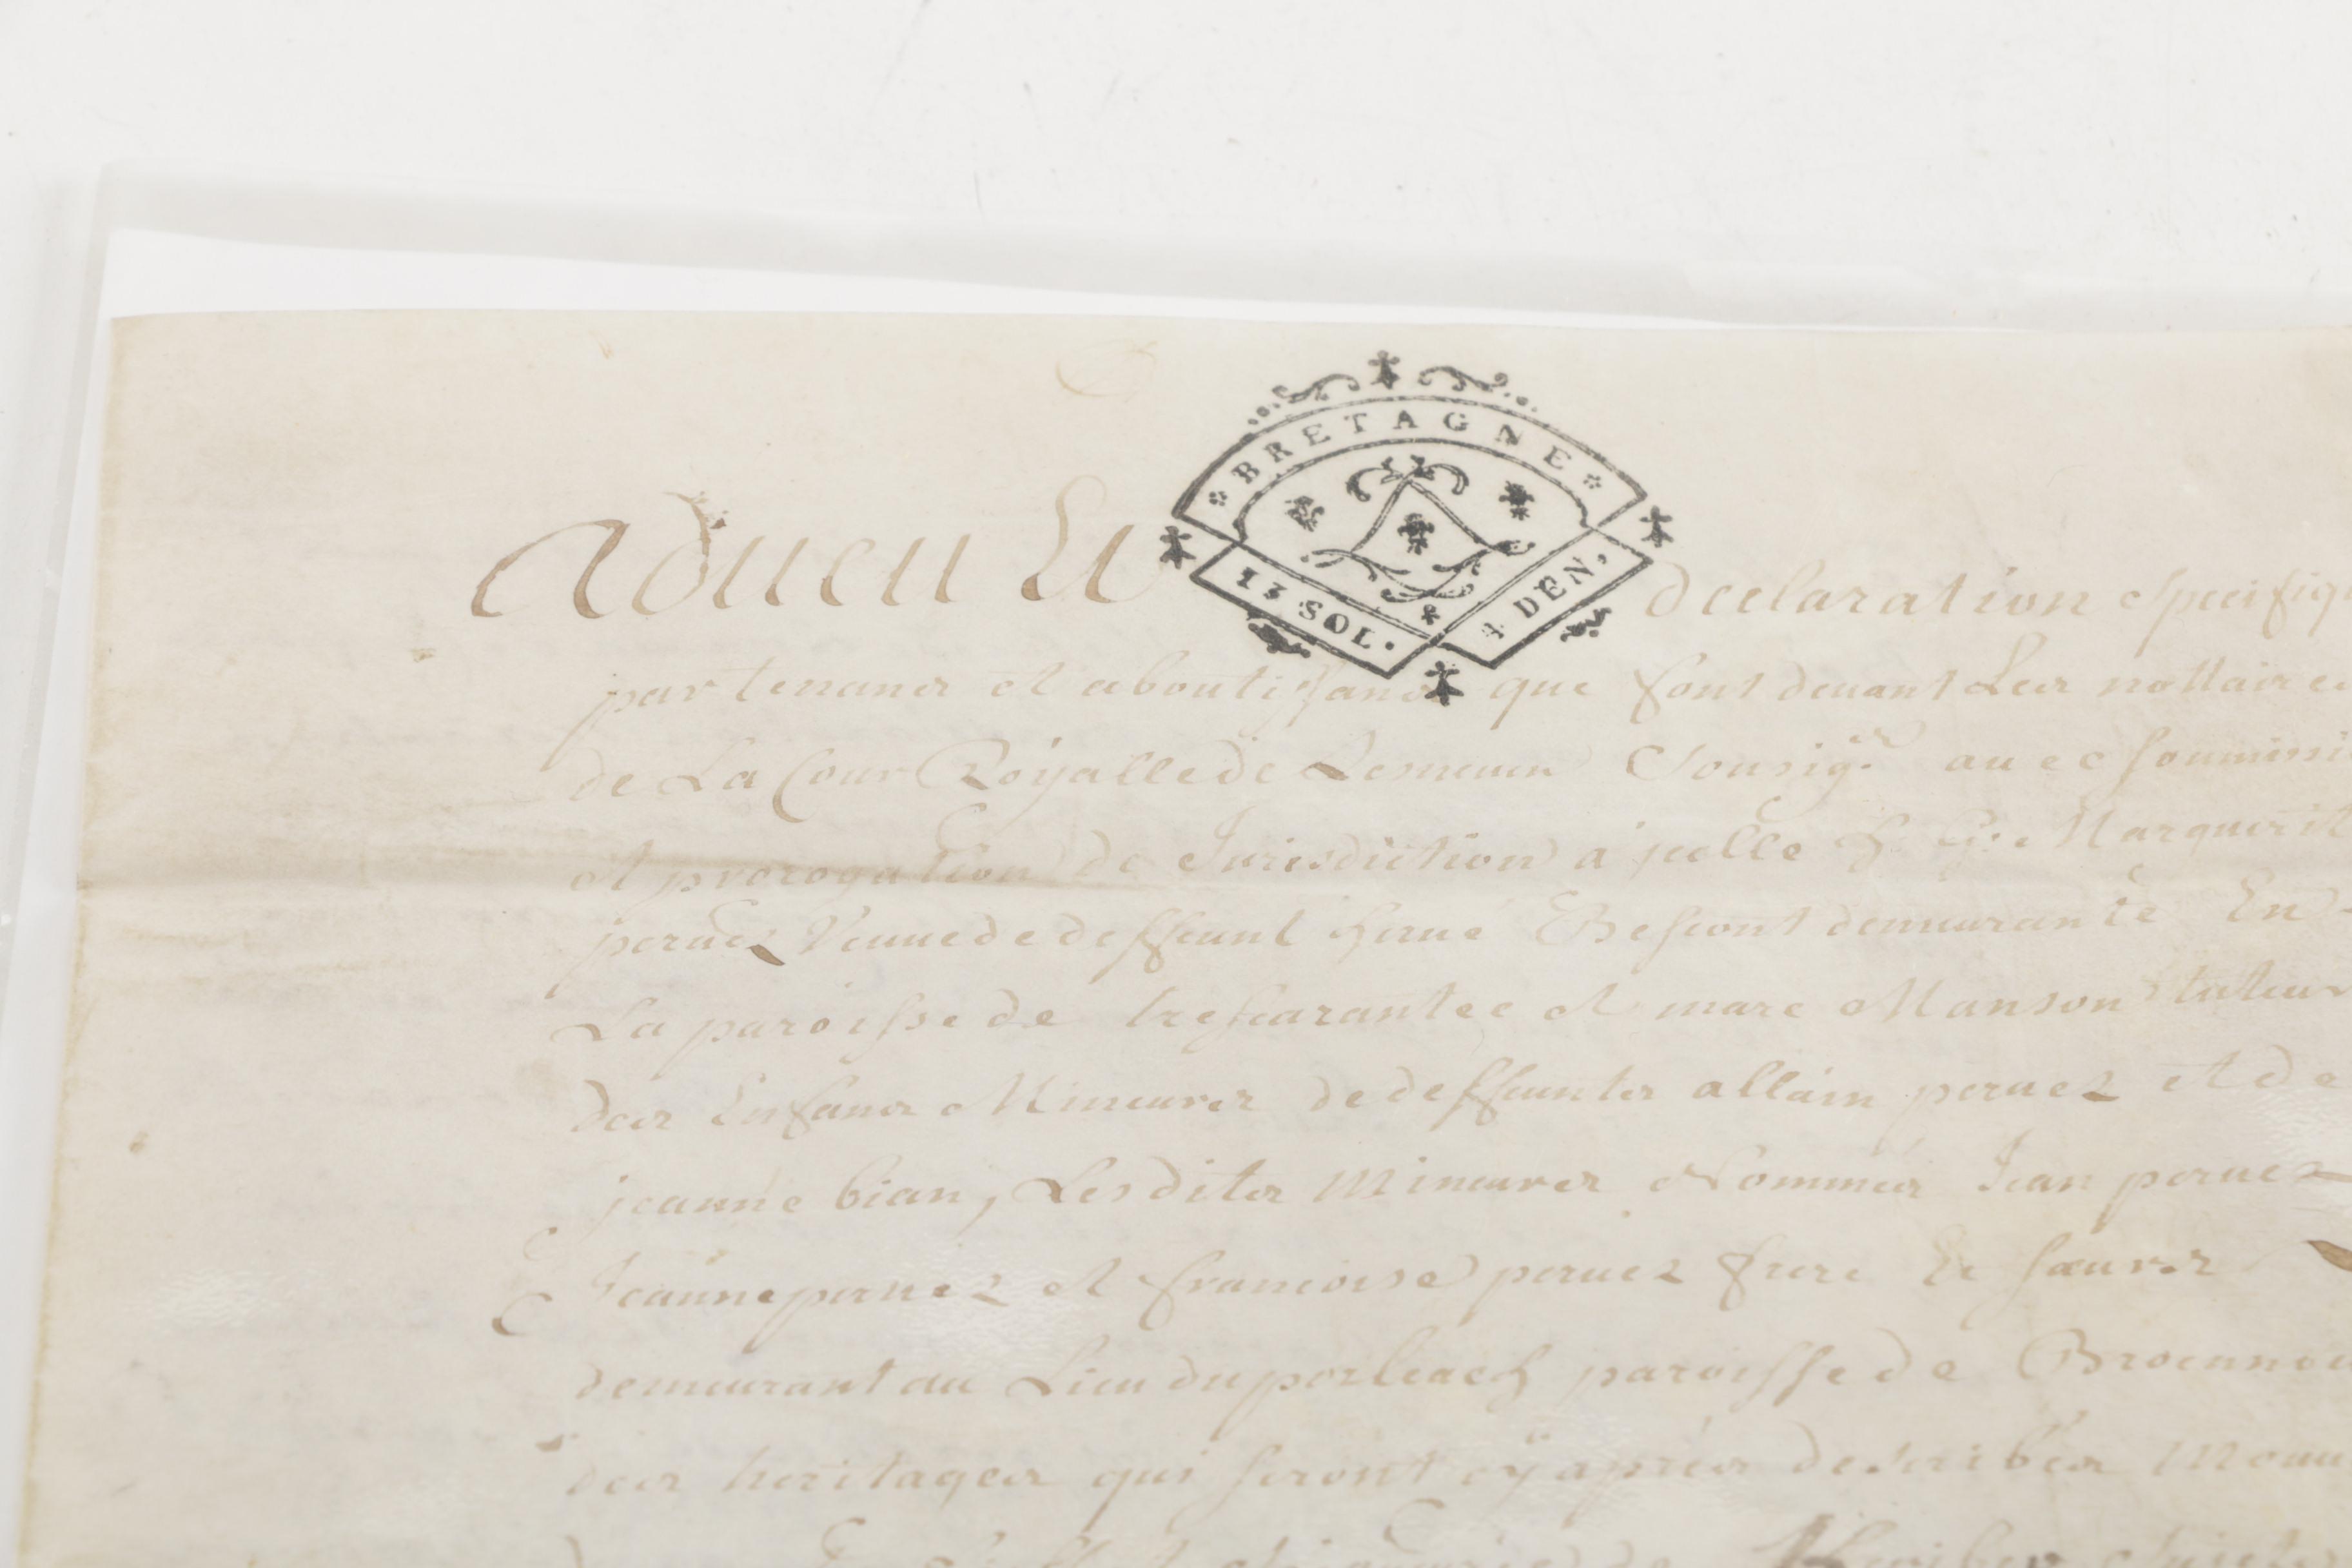 BRETAGNE
13 SOL. 4 DEN,
Adueu Et declaration specifiq
partenans et aboutissans que font deuant Les nottaires
de La Cour Royalle de Lesneuen Sousigé auec soumissi
et prorogation de Jurisdiction a jcelle Marguerit
peruez Veuue de deffunt herué Bescont demeurante En
La paroisse de trefcarantec et marc Manson tuteur
des Enfans Mineures de deffunts allain peruez et de
jeanne bian, Lesdits Mineures Nommés Jean peruez
Jeanne peruez et francoise peruez frere Et sœures
demeurant au Lieu du porleach paroisse de Broennou
des heritages qui seront cÿ aprés describés Mouu